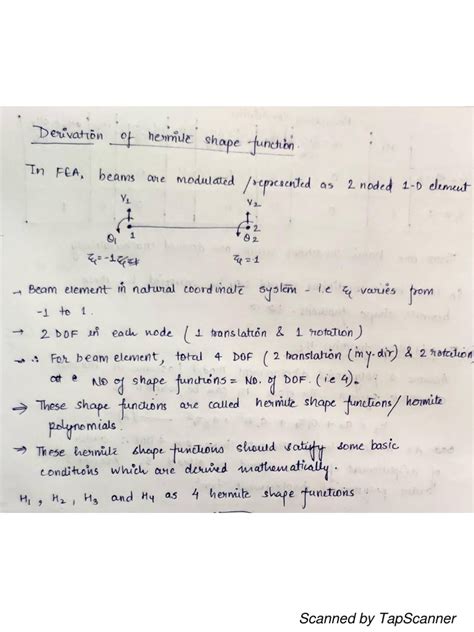 Derivation of hermite shape function.
In FEA, beams are modulated / represented as 2 noded 1-D element
V1 V2
1 2
θ1 θ2
ξ = -1 ξ = 1
→ Beam element in natural coordinate system - i.e ξ varies from
-1 to 1.
→ 2 DOF in each node ( 1 translation & 1 rotation )
→ ∴ For beam element, total 4 DOF ( 2 translation (in y-dir) & 2 rotation
No of shape functions = No. of DOF. (i.e 4).
⇒ These shape functions are called hermite shape functions / hermite
polynomials.
→ These hermite shape functions should satisfy some basic
conditions which are derived mathematically.
H1, H2, H3 and H4 as 4 hermite shape functions
Scanned by TapScanner